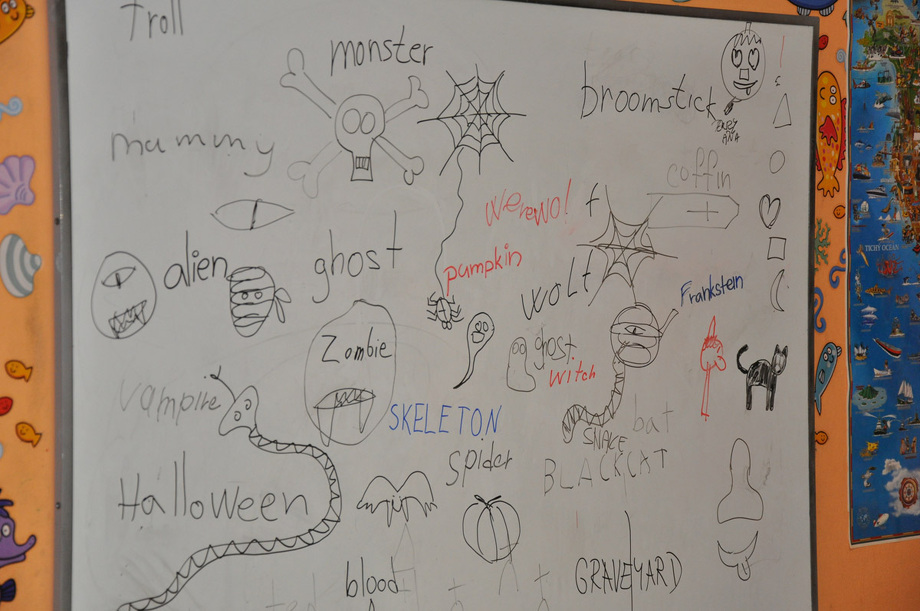 Troll
monster
broomstick
mummy
coffin
werewo! f
alien
ghost
pumpkin
wolf
Frankstein
Zombie
ghost
witch
vampire
SKELETON
bat
SNAKE
spider
BLACKCAT
Halloween
blood
GRAVEYARD
TICHY OCEÁN